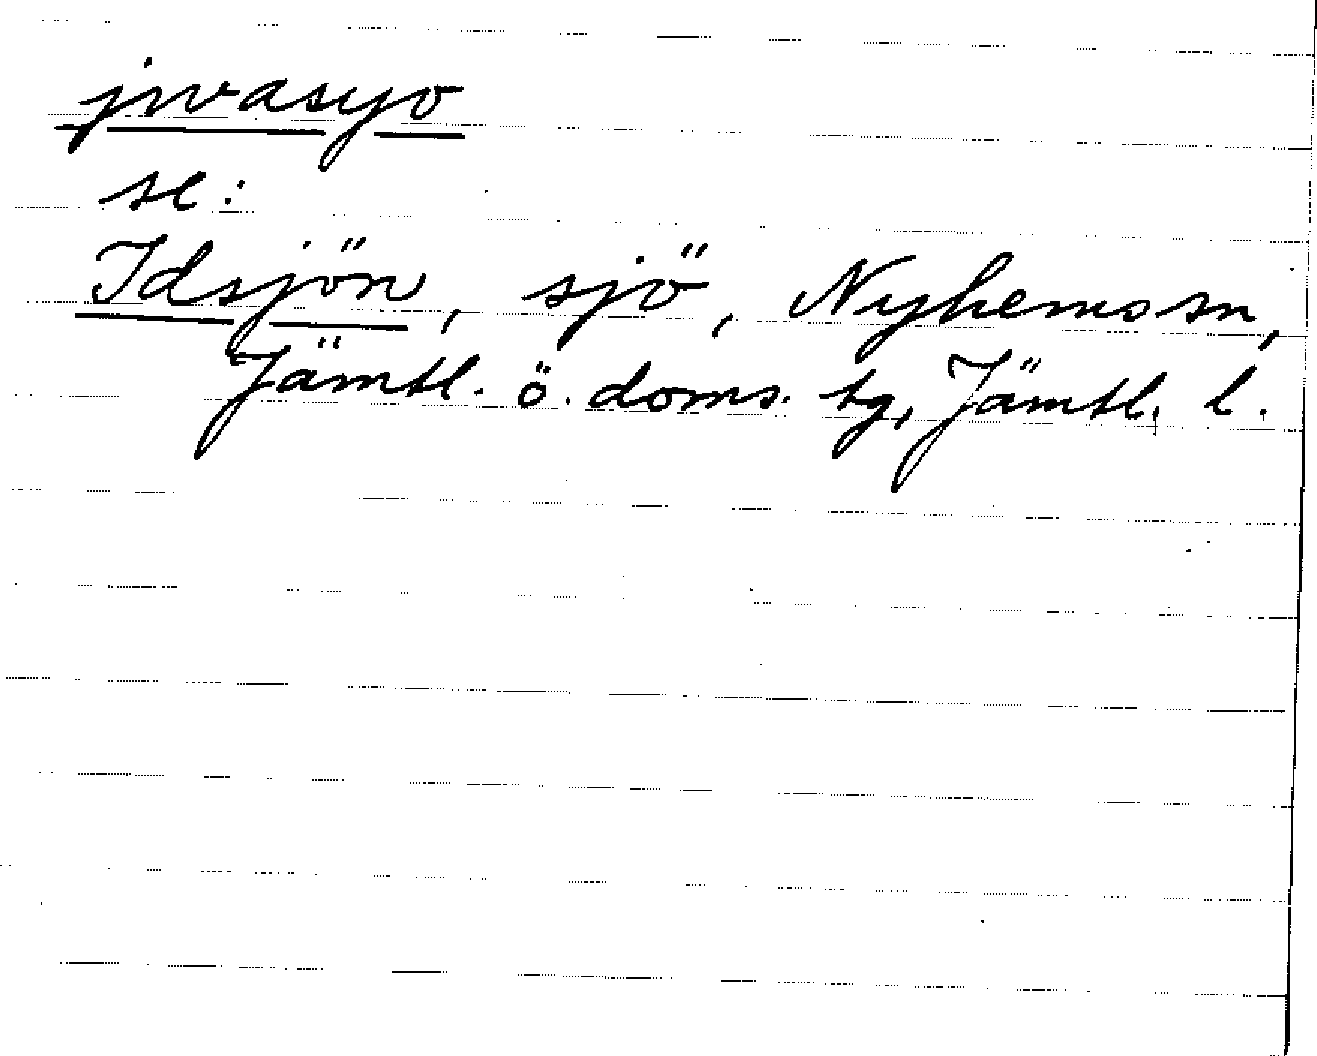 jivasyo
se:
Idsjön, sjö, Nyhems sn,
Jämtl. ö. doms. tg, Jämtl. l.